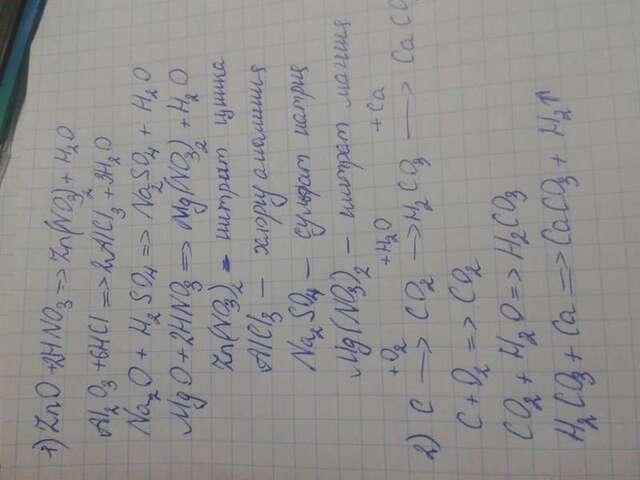 1) ZnO + 2HNO₃ => Zn(NO₃)₂ + H₂O
Al₂O₃ + 6HCl => 2AlCl₃ + 3H₂O
Na₂O + H₂SO₄ => Na₂SO₄ + H₂O
MgO + 2HNO₃ => Mg(NO₃)₂ + H₂O
Zn(NO₃)₂ - нитрат цинка
AlCl₃ - хлорид алюминия
Na₂SO₄ - сульфат натрия
Mg(NO₃)₂ - нитрат магния
+O₂ +H₂O +Ca
2) C —> CO₂ —> H₂CO₃ —> CaCO
C + O₂ => CO₂
CO₂ + H₂O => H₂CO₃
H₂CO₃ + Ca => CaCO₃ + H₂↑